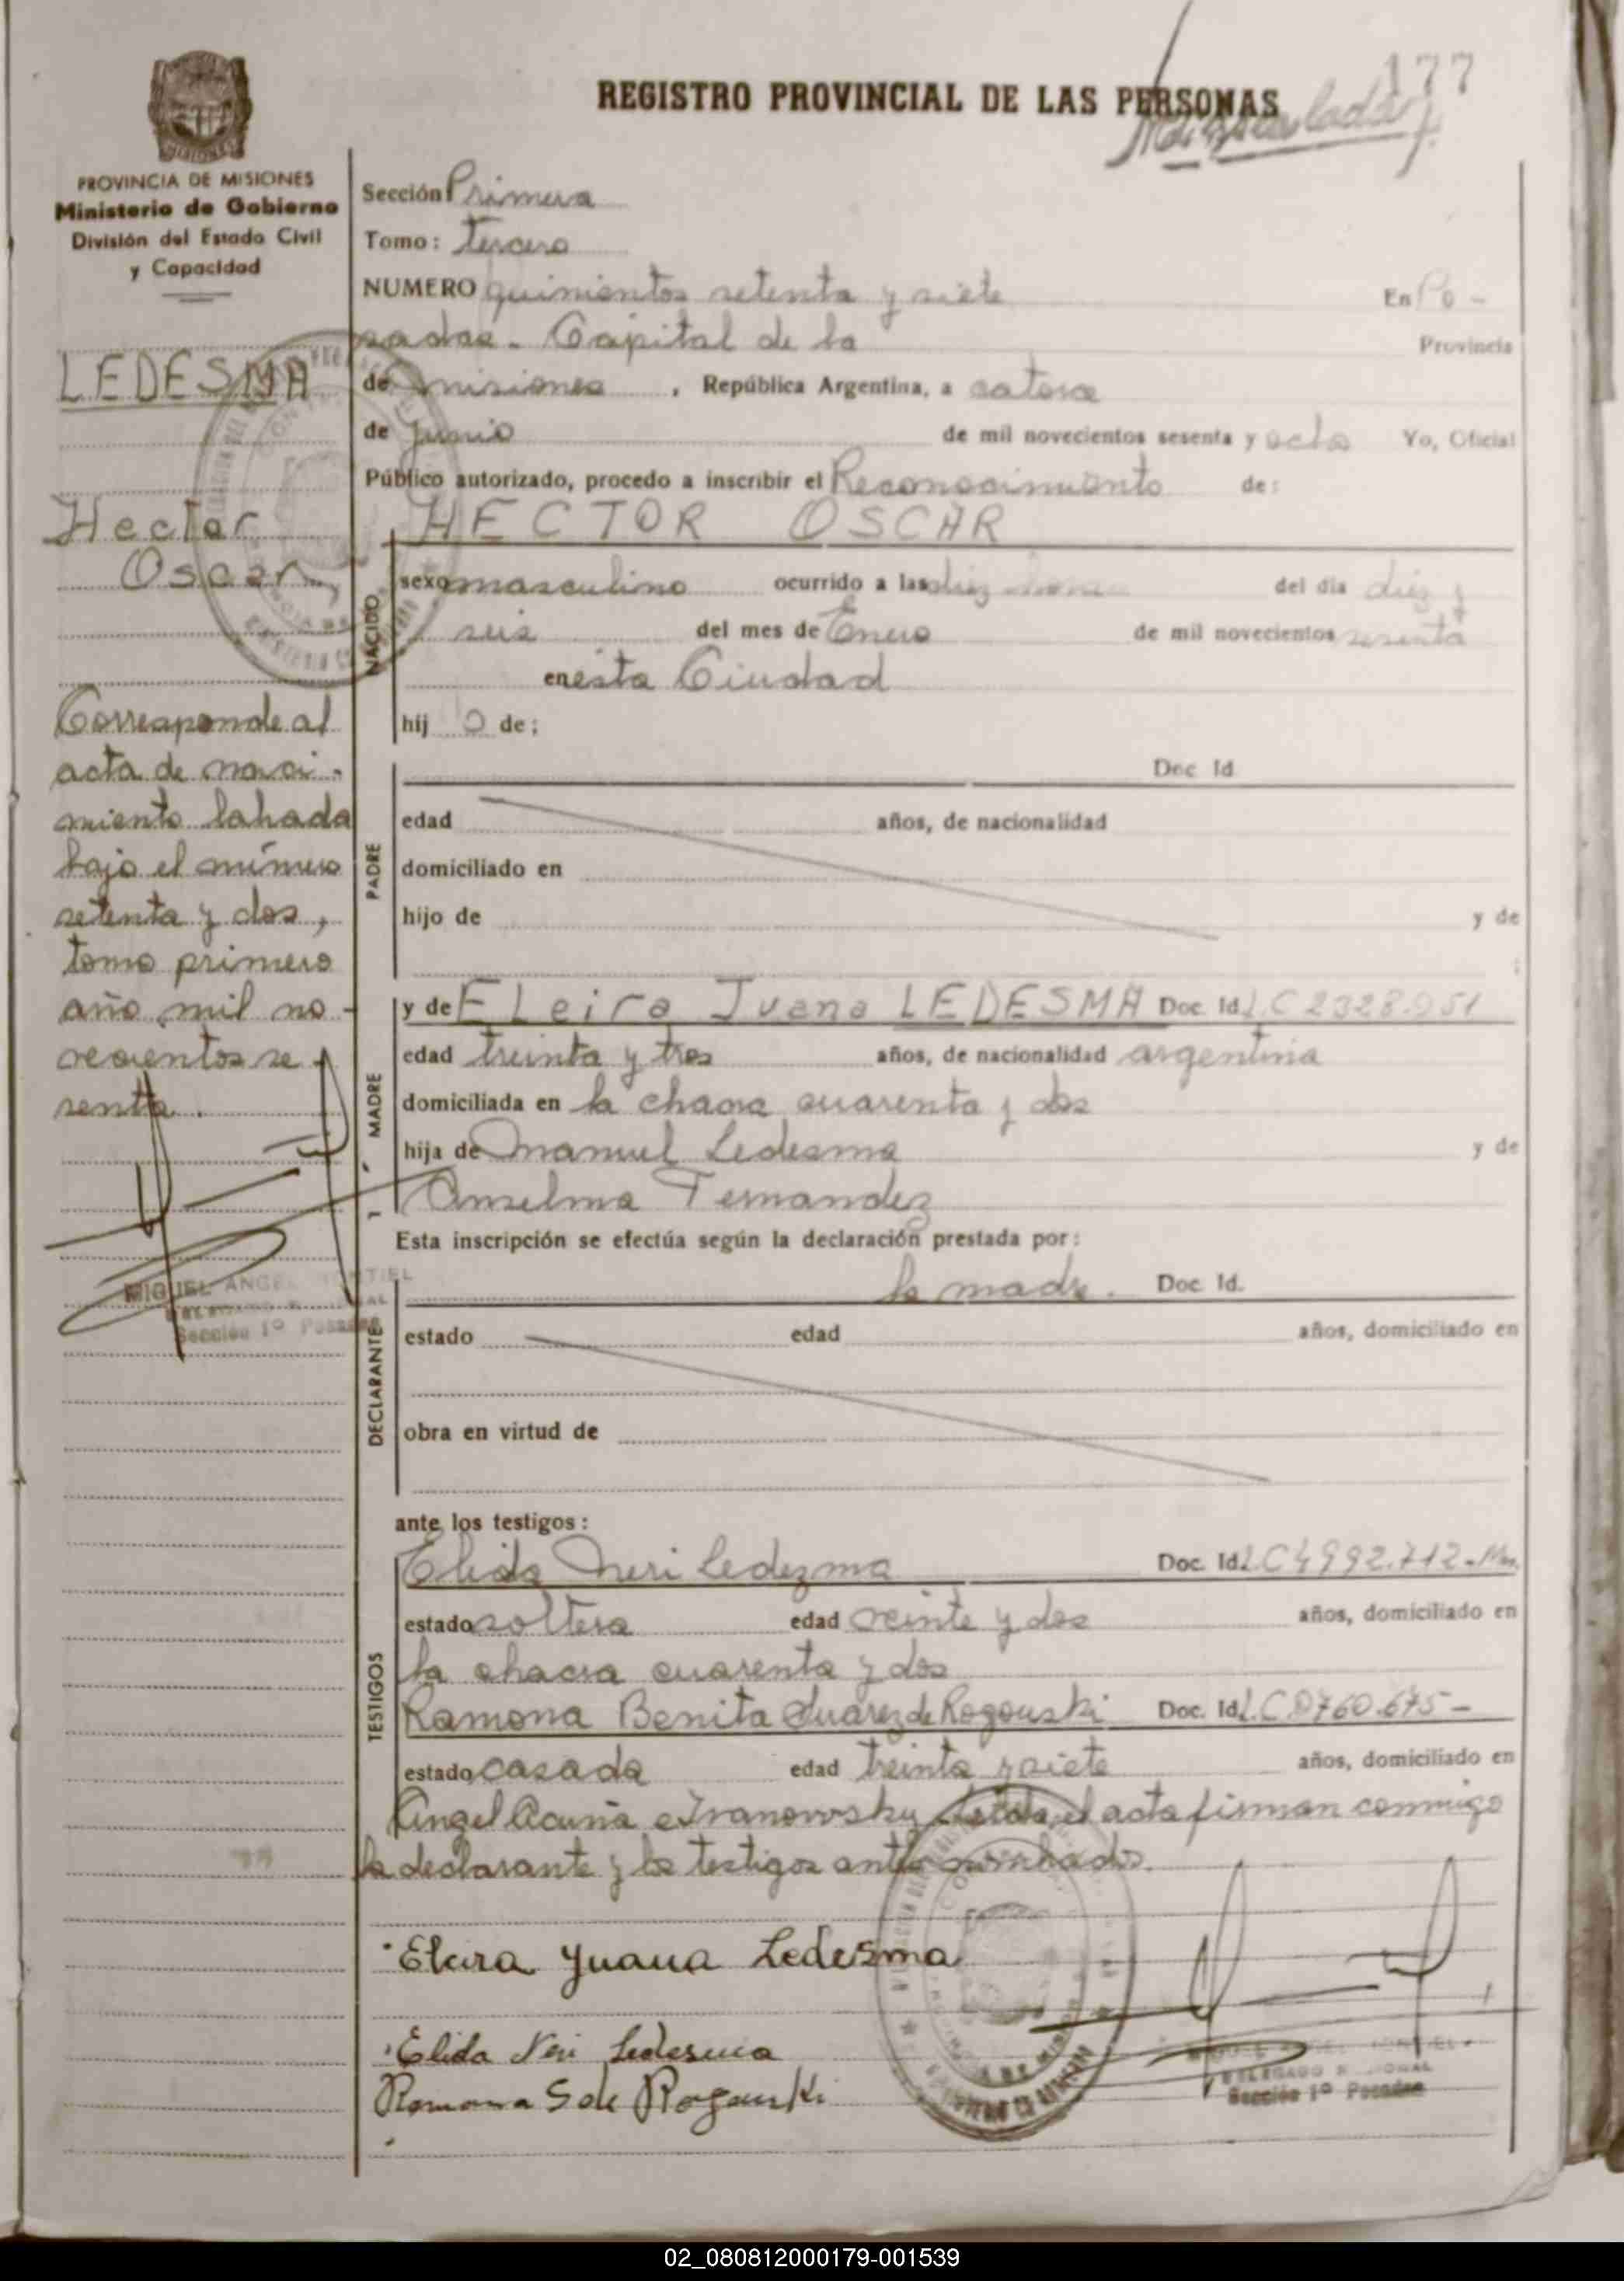 177
REGISTRO PROVINCIAL DE LAS PERSONAS
MISIONES
PROVINCIA DE MISIONES
Ministerio de Gobierno
División del Estado Civil
y Capacidad
LEDESMA
Hector
Oscar
Corresponde al
acta de naci-
miento labrada
bajo el número
setenta y dos,
tomo primero
año mil no-
vecientos se
senta.
MIGUEL ANGEL MONTIEL
Sección 1º Posadas
Sección Primera
Tomo: tercero
NUMERO quinientos setenta y siete En Po-
sadas. Capital de la Provincia
de Misiones, República Argentina, a catorce
de Junio de mil novecientos sesenta y ocho Yo, Oficial
Público autorizado, procedo a inscribir el Reconocimiento de:
HECTOR OSCAR
NACIDO
sexo masculino ocurrido a las diez horas del día diez y
seis del mes de Enero de mil novecientos sesenta
en esta Ciudad
hij o de;
PADRE
Doc Id
edad años, de nacionalidad
domiciliado en
hijo de y de
MADRE
y de ELeira Juana LEDESMA Doc. Id L.C 2328.951
edad treinta y tres años, de nacionalidad argentina
domiciliada en la chacra cuarenta y dos
hija de Manuel Ledesma y de
Anselma Fernandez
Esta inscripción se efectúa según la declaración prestada por:
DECLARANTE
la madre. Doc. Id.
estado edad años, domiciliado en
obra en virtud de
ante los testigos:
TESTIGOS
Elida Neri Ledezma Doc. Id L.C 4992.712-
estado soltera edad veinte y dos años, domiciliado en
la chacra cuarenta y dos
Ramona Benita Suarez de Rogouski Doc. Id L.C.0760.675-
estado casada edad treinta y siete años, domiciliado en
Angel Acuña e Ivanowsky. Leida el acta firman conmigo
la declarante y los testigos ante nombrados.
Eleira Juana Ledesma
Elida Neri Ledesma
Ramona S de Rogouski
DELEGADO
Sección 1º Posadas
02_080812000179-001539